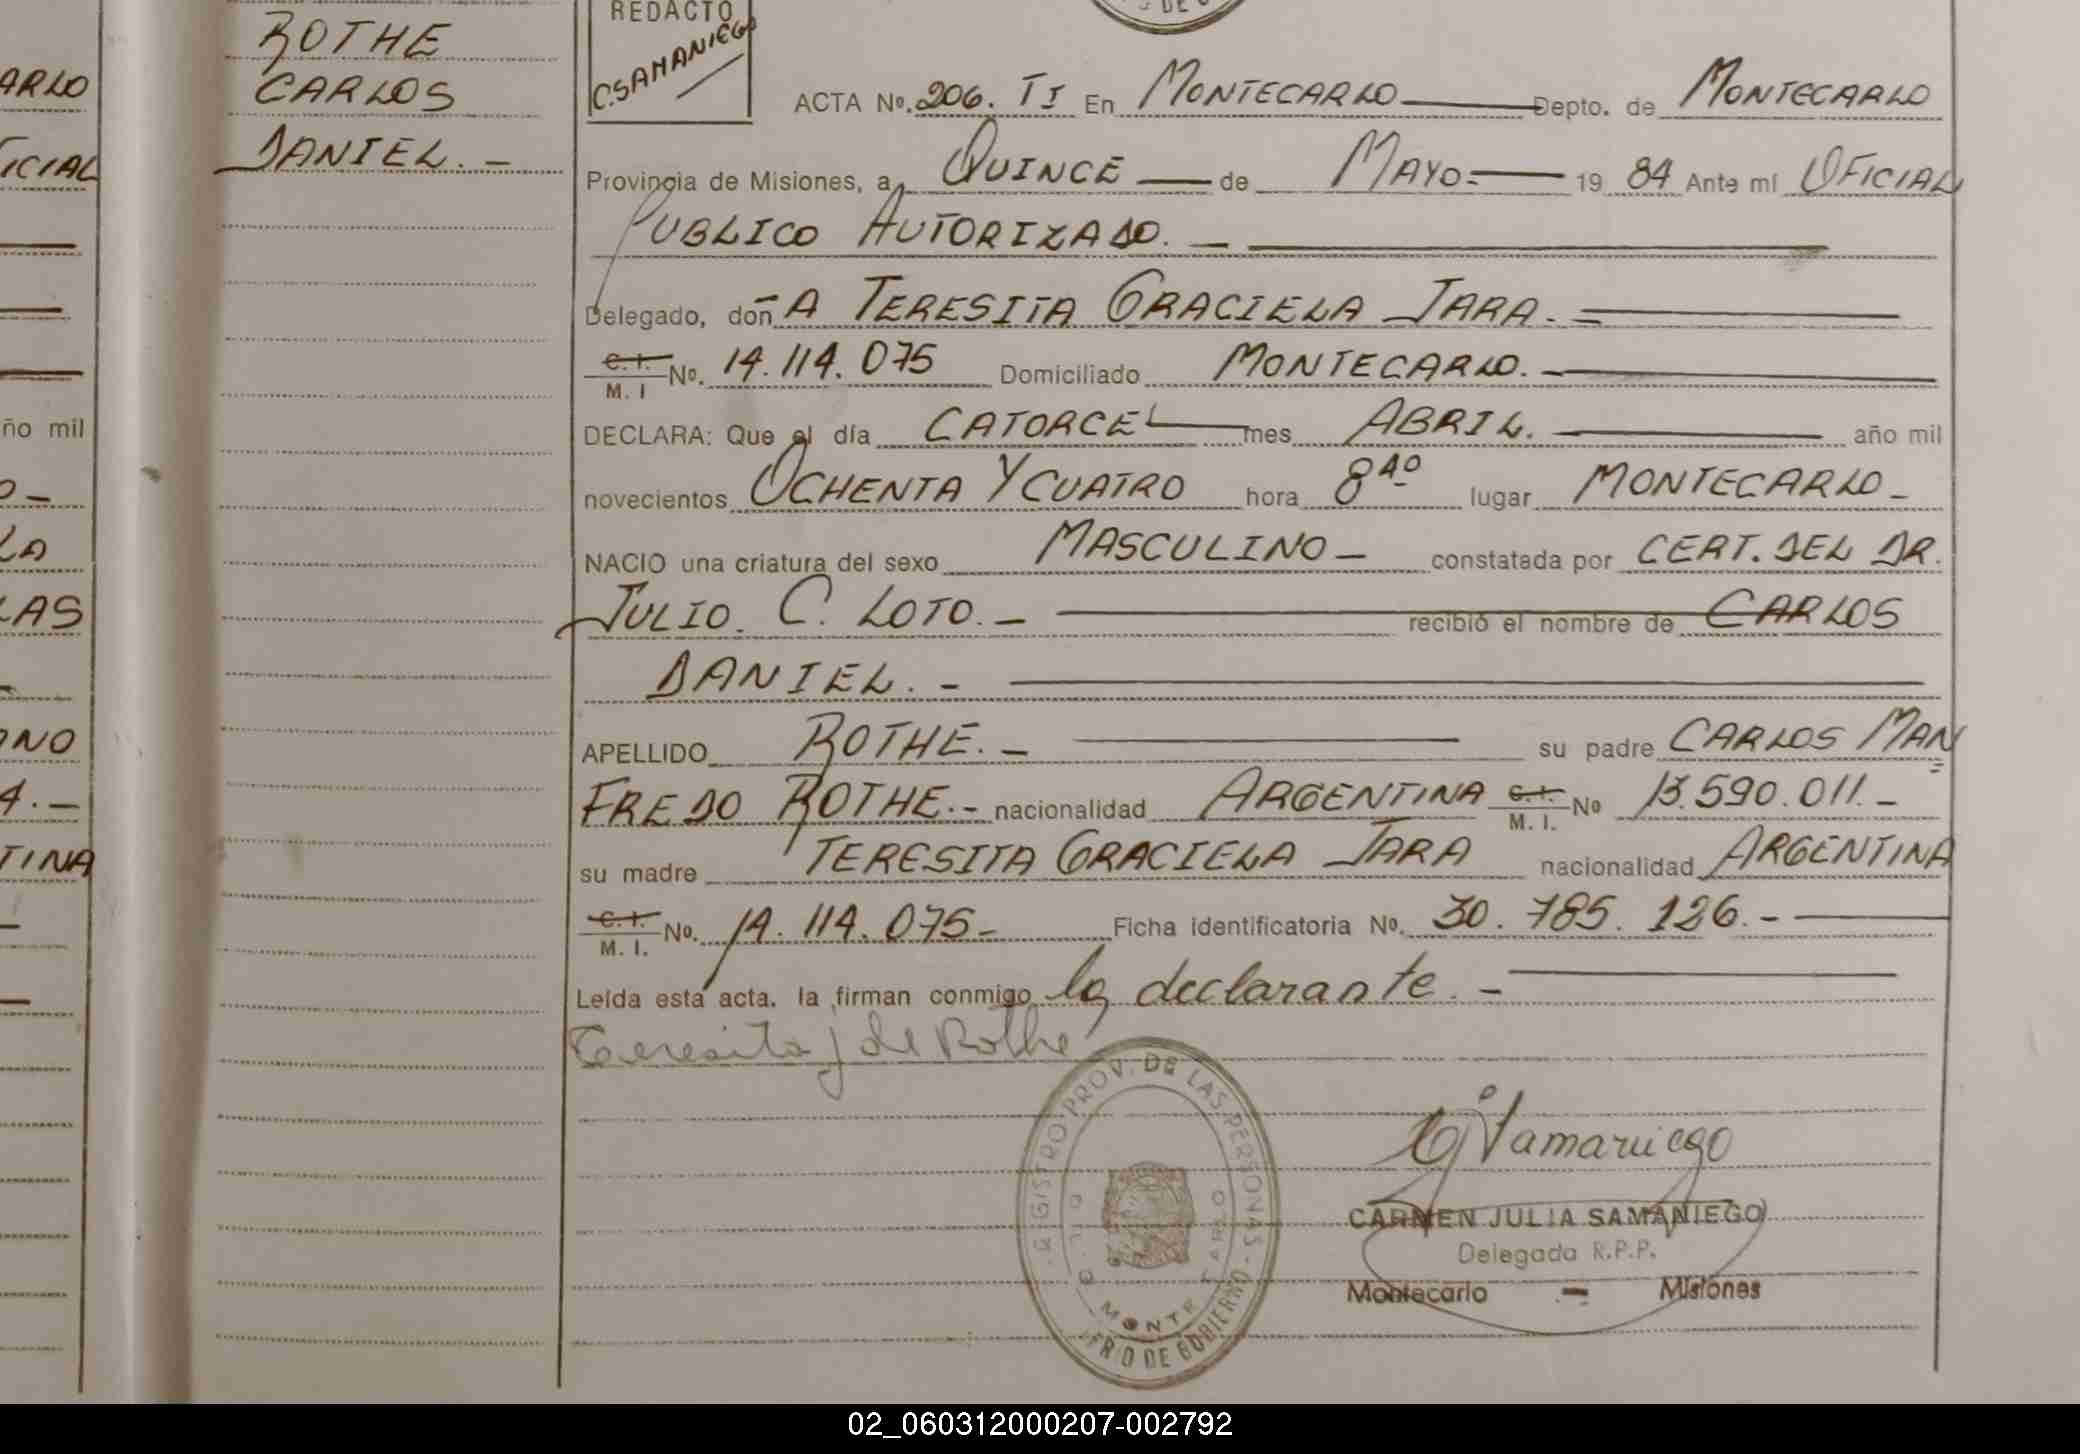 ROTHE
CARLOS
DANIEL. -
REDACTO
C.SAMANIEGO
ARLO
ICIAL
ño mil
O -
LA
LAS
ANO
4. -
TINA
ACTA No. 206. TI En MONTECARLO Depto. de MONTECARLO
Provincia de Misiones, a QUINCE de MAYO 19 84 Ante mí OFICIAL
PUBLICO AUTORIZADO. -
Delegado, don A TERESITA GRACIELA JARA. -
C. I. M. I No. 14.114.075 Domiciliado MONTECARLO. -
DECLARA: Que el día CATORCE mes ABRIL. año mil
novecientos OCHENTA Y CUATRO hora 8 40 lugar MONTECARLO -
NACIO una criatura del sexo MASCULINO - constatada por CERT. DEL DR.
JULIO. C. LOTO. - recibió el nombre de CARLOS
DANIEL. -
APELLIDO ROTHE. - su padre CARLOS MAN
FREDO ROTHE. - nacionalidad ARGENTINA C. I. M. I. No 13.590.011. -
su madre TERESITA GRACIELA JARA nacionalidad ARGENTINA
C. I. M. I. No. 14.114.075 - Ficha identificatoria No. 30.785.126. -
Leída esta acta, la firman conmigo la declarante. -
Teresita J de Rothe
REGISTRO PROV. DE LAS PERSONAS
MONTE CARLO
DE GOBIERNO
CJSamaniego
CARMEN JULIA SAMANIEGO
Delegada R.P.P.
Montecarlo - Misiones
02_060312000207-002792